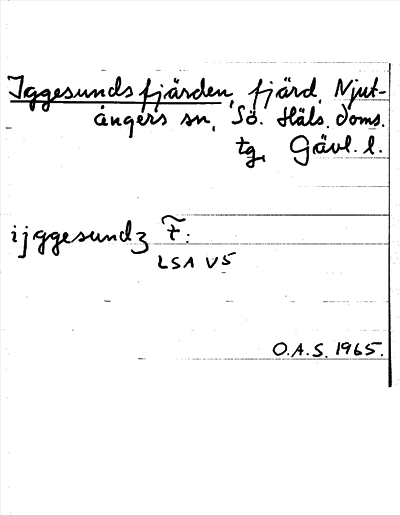 Iggesundsfjärden, fjärd, Njut-
ångers sn, Sö. Häls. doms.
tg, Gävl. l.
ijggesundʒ f̃:
LSA V5
O.A.S. 1965.